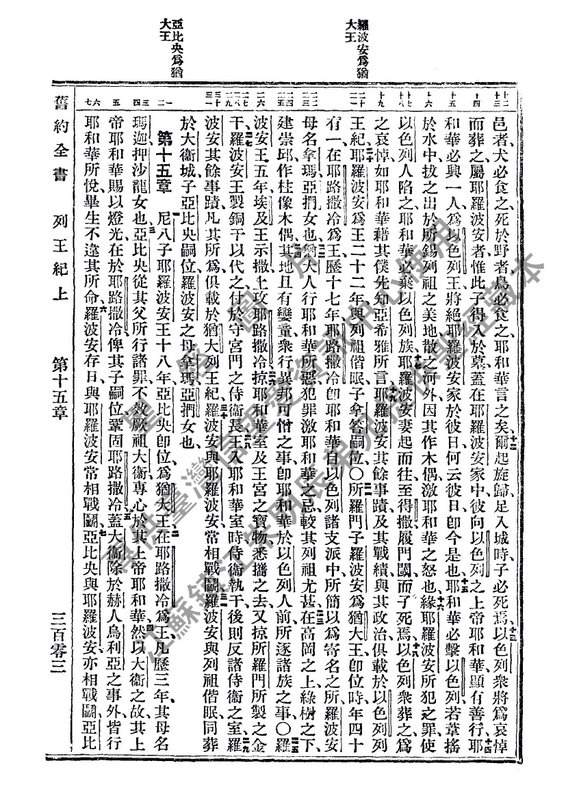 羅波安為猶
大王
亞比央為猶
大王
邑者犬必食之死於野者鳥必食之耶和華言之矣爾起旋歸足入城時子必死焉以色列衆將為哀悼
而葬之屬耶羅波安者惟此子得入於墓蓋在耶羅波安家中彼向以色列之上帝耶和華顯有善行耶
和華必興一人為以色列王將絕耶羅波安家於彼日何云彼日卽今是也耶和華必擊以色列若葦搖
於水中拔之出於所錫列祖之美地散之河外因其作木偶激耶和華之怒也緣耶羅波安所犯之罪使
以色列人陷之耶和華必棄以色列族耶羅波安妻起而往至得撒履門閾而子死焉以色列衆葬之為
之哀悼如耶和華藉其僕先知亞希雅所言耶羅波安其餘事蹟及其戰績與其政治俱載於以色列列
王紀耶羅波安為王二十二年與列祖偕眠子拿答嗣位〇所羅門子羅波安為猶大王卽位時年四十
有一在耶路撒冷為王歷十七年耶路撒冷卽耶和華自以色列諸支派中所簡以為寄名之所羅波安
母名拿瑪亞捫女也猶大人行耶和華所惡犯罪激耶和華之忌較其列祖尤甚在高岡之上綠樹之下
建崇邱作柱像木偶其地且有孌童衆行異邦可憎之事卽耶和華於以色列人前所逐諸族之事〇羅
波安王五年埃及王示撒上攻耶路撒冷掠耶和華室及王宮之寶物悉攜之去又掠所羅門所製之金
干羅波安王製銅干以代之付於守宮門之侍衛長王入耶和華室時侍衛執干後則反諸侍衛之室羅
波安其餘事蹟凡其所為俱載於猶大列王紀羅波安與耶羅波安常相戰鬭羅波安與列祖偕眠同葬
於大衛城子亞比央嗣位羅波安之母拿瑪亞捫女也
第十五章 尼八子耶羅波安王十八年亞比央卽位為猶大王在耶路撒冷為王凡歷三年其母名
瑪迦押沙龍女也亞比央從其父所行諸罪不效厥祖大衛專心於其上帝耶和華然以大衛之故其上
帝耶和華賜以燈光在於耶路撒冷俾其子嗣位鞏固耶路撒冷蓋大衛除於赫人烏利亞之事外皆行
耶和華所悅畢生不違其所命羅波安存日與耶羅波安常相戰鬭亞比央與耶羅波安亦相戰鬭亞比
舊約全書 列王紀上 第十五章 三百零三